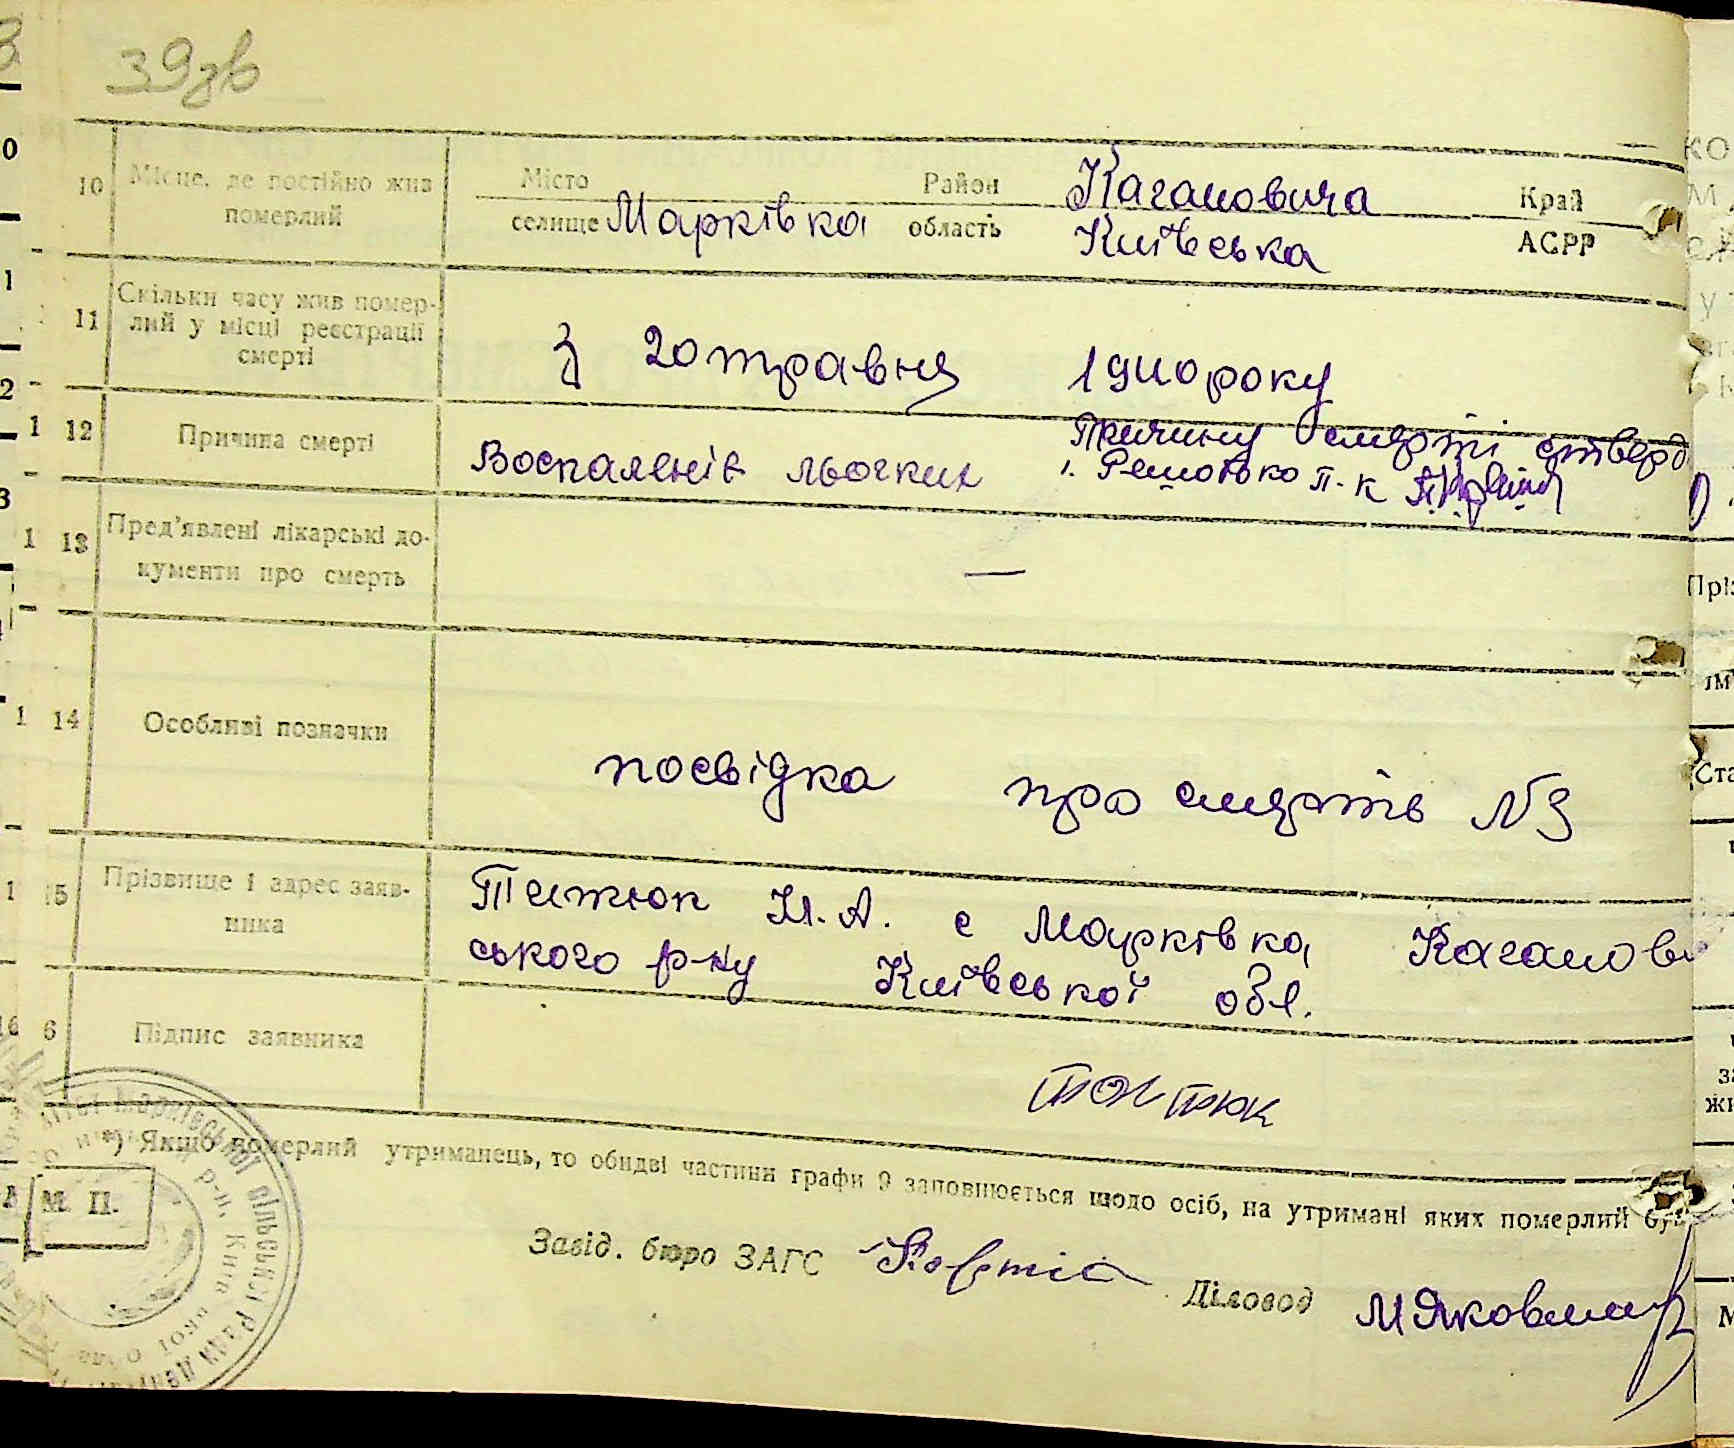 39зв
10 Місце, де постійно жив померлий
Місто селище Марківка Район Кагановича область Київська Край АСРР
11 Скільки часу жив помер-
лий у місці реєстрації
смерті
з 20 травня 1940 року
12 Причина смерті
Воспаленія льогких Причину смерті стверд
13 Пред'явлені лікарські до-
кументи про смерть
—
14 Особливі позначки
посвідка про смерть №3
15 Прізвище і адрес заяв-
ника
с Марківка Каганови
ського р-ну Київської обл.
Підпис заявника
*) Якщо померлий утриманець, то обидві частини графи 9 заповнюється щодо осіб, на утримані яких померлий був
М. П.
Завід. бюро ЗАГС
Діловод